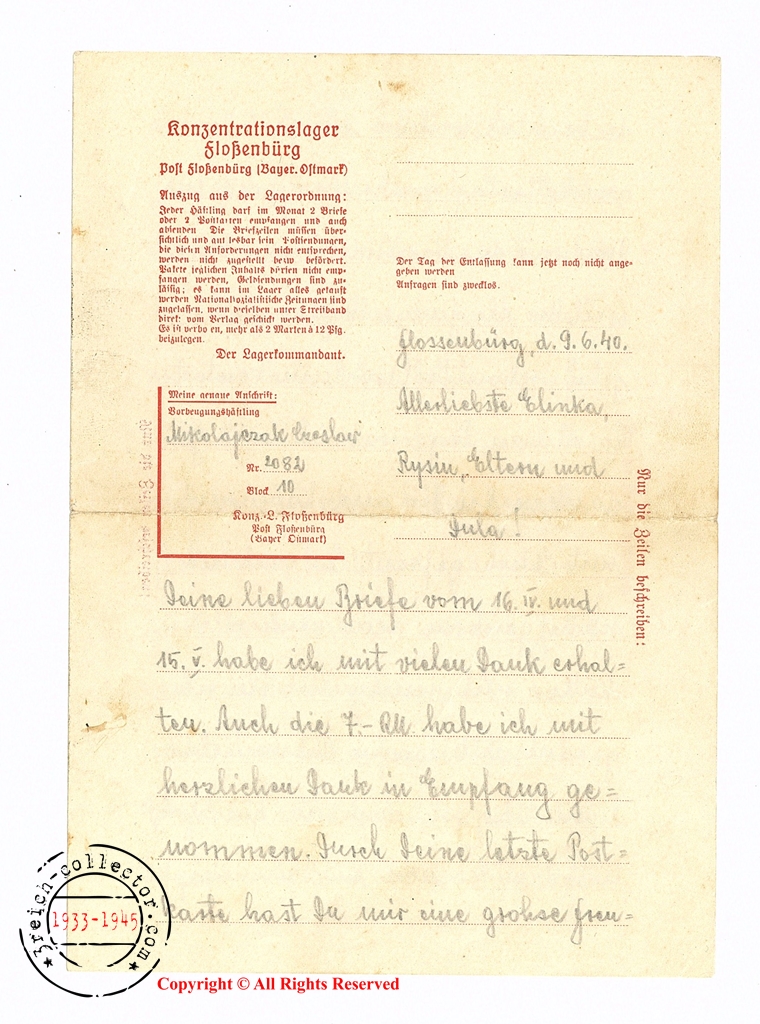 Konzentrationslager
Floßenbürg
Post Floßenbürg (Bayer. Ostmark)
Auszug aus der Lagerordnung:
Jeder Häftling darf im Monat 2 Briefe
oder 2 Postkarten empfangen und auch
absenden Die Briefzeilen müssen über-
sichtlich und gut lesbar sein Postsendungen,
die diesen Anforderungen nicht entsprechen,
werden nicht zugestellt bezw befördert.
Pakete jeglichen Inhalts dürfen nicht emp-
fangen werden, Geldsendungen sind zu-
lässig; es kann im Lager alles gekauft
werden Nationalsozialistische Zeitungen sind
zugelassen, wenn dieselben unter Streifband
direkt vom Verlag geschickt werden.
Es ist verbo en, mehr als 2 Marken à 12 Pfg.
beizulegen.
Der Lagerkommandant.
Meine genaue Anschrift:
Vorbeugungshäftling
Mikolajczak Czeslaw
Nr. 2082
Block 10
Konz.-L. Floßenbürg
Post Floßenbürg
(Bayer Ostmark)
Der Tag der Entlassung kann jetzt noch nicht ange-
geben werden
Anfragen sind zwecklos.
Flossenbürg, d. 9.6.40.
Allerliebste Elinka,
Rysiu, Eltern und
Dula!
Nur die Zeilen beschreiben:
Deine lieben Briefe vom 16. IV. und
15. V. habe ich mit vielen Dank erhal=
ten. Auch die 7.- RM. habe ich mit
herzlichen Dank in Empfang ge=
nommen. Durch Deine letzte Post=
karte hast Du mir eine grohse Freu=
3reich-collector.com
1933-1945
Copyright © All Rights Reserved